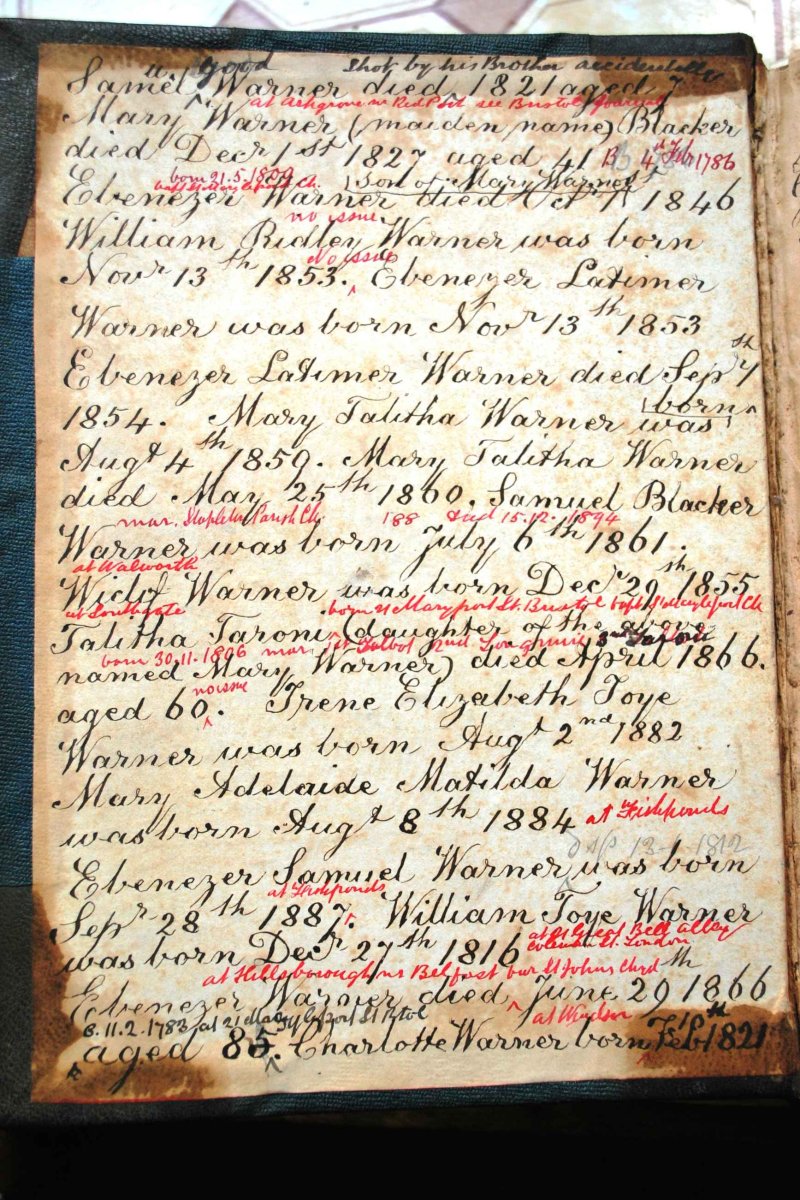 good shot by his Brother accidentally
Samel Warner died 1821 aged 7
at Ashgrove nr Red Post see Bristol Journal
Mary Warner (maiden name) Blacker
died Decr 1st 1827 aged 41 B 4th Feb 1786
born 21.5.1809
bapt St Mary leport Ch. (Son of Mary Warner)
Ebenezer Warner died Octr 1846
no issue
William Ridley Warner was born
No issue
Novr 13th 1853. Ebenezer Latimer
Warner was born Novr 13th 1853
Ebenezer Latimer Warner died Sepr 7th
born
1854. Mary Talitha Warner was
Augt 4th 1859. Mary Talitha Warner
died May 25th 1860. Samuel Blacker
mar. Stapleton Parish Ch. 188 died 15.12.1894
Warner was born July 6th 1861.
at Walworth
Wiclif Warner was born Decr 29th 1855
at Southgate born 21 Maryport St. Bristol bapt St Mary leport Ch
Talitha Taroni (daughter of the above
born 30.11.1806 mar. 1st Talbot 2nd Longmire 3rd Taroni
named Mary Warner) died April 1866.
no issue
aged 60. Irene Elizabeth Toye
Warner was born Augt 2nd 1882
Mary Adelaide Matilda Warner
was born Augt 8th 1884 at Fishponds
1812
Ebenezer Samuel Warner was born
at Fishponds
Sepr 28th 1887. William Toye Warner
at Great Bell Alley
was born Decr 27th 1816 Coleman St. London
at Hillsborough nr Belfast bur St Johns Chyd
Ebenezer Warner died June 29th 1866
B. 11.2.1783 at 21 Mary leport St Btol at Windsor
aged 85. Charlotte Warner born Feb 1821